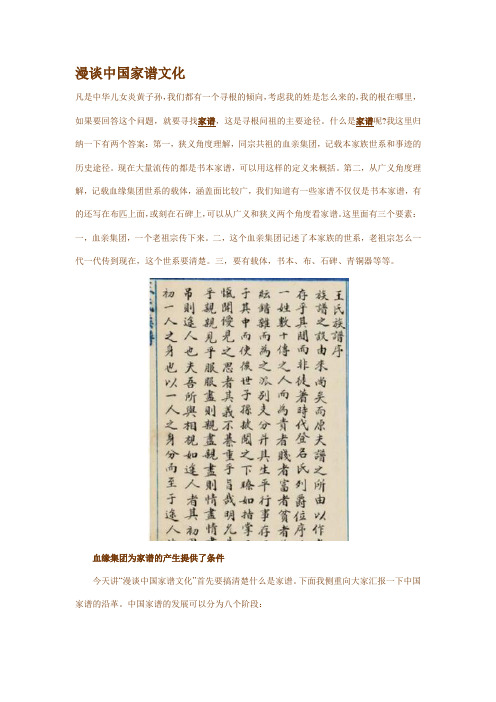 漫谈中国家谱文化
凡是中华儿女炎黄子孙,我们都有一个寻根的倾向,考虑我的姓是怎么来的,我的根在哪里,
如果要回答这个问题,就要寻找家谱,这是寻根问祖的主要途径。什么是家谱呢?我这里归
纳一下有两个答案:第一,狭义角度理解,同宗共祖的血亲集团,记载本家族世系和事迹的
历史途径。现在大量流传的都是书本家谱,可以用这样的定义来概括。第二,从广义角度理
解,记载血缘集团世系的载体,涵盖面比较广,我们知道有一些家谱不仅仅是书本家谱,有
的还写在布匹上面,或刻在石碑上,可以从广义和狭义两个角度看家谱。这里面有三个要素:
一,血亲集团,一个老祖宗传下来。二,这个血亲集团记述了本家族的世系,老祖宗怎么一
代一代传到现在,这个世系要清楚。三,要有载体,书本、布、石碑、青铜器等等。
王氏族譜序
族譜之設由来尚矣而原夫譜之所由以作
存乎其間而非徒著時代登名氏列爵位序
一姓數十傳之人而為貴者賤者富者貧者
紜錯雜而為之派列支分并其生平行事存
于其中而使後世子孫披閱之下瞭如指掌
愾聞僾見之思者其義不綦重乎旨哉明允
乎親親見乎服服盡則親盡親盡則情盡情
吊則途人也夫吾所與相視如途人者其初
初一人之身也以一人之身分而至于途人
血缘集团为家谱的产生提供了条件
今天讲“漫谈中国家谱文化”首先要搞清楚什么是家谱。下面我侧重向大家汇报一下中国
家谱的沿革。中国家谱的发展可以分为八个阶段: